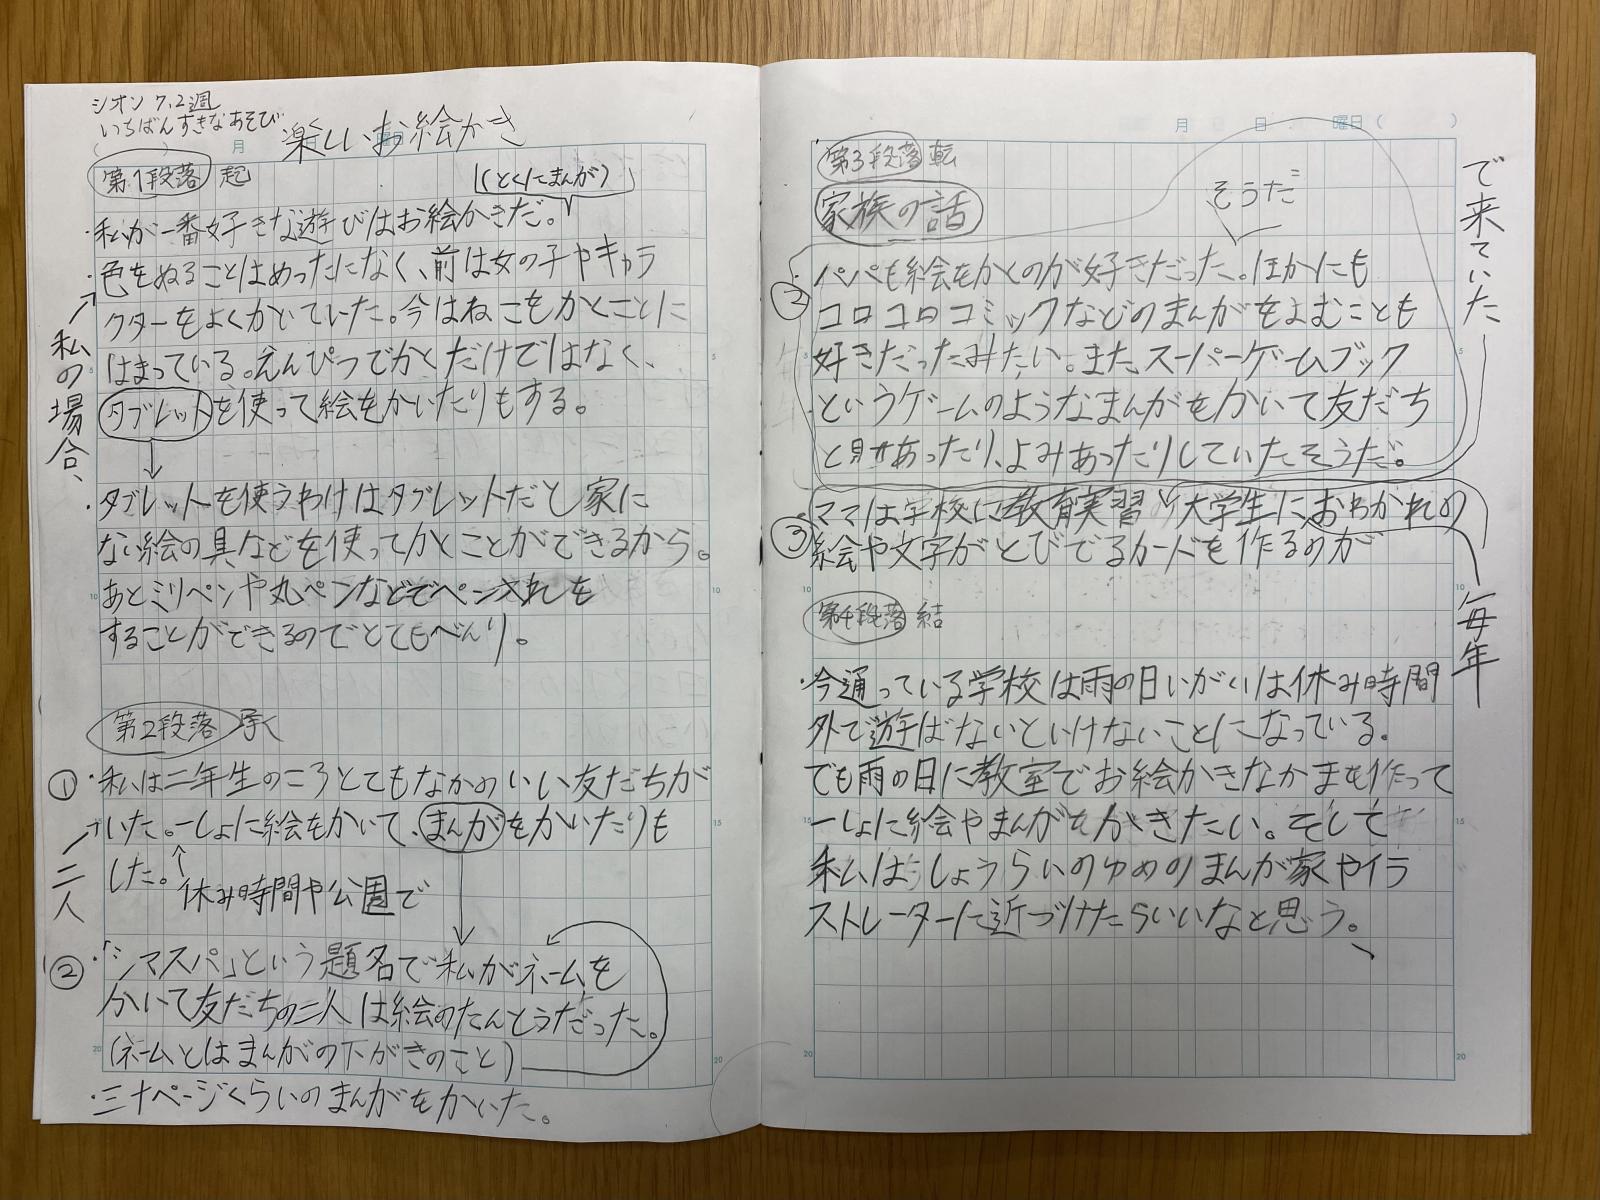 シオン 7.2週
いちばんすきなあそび
楽しいお絵かき
( ) 月 日 曜日
第1段落 起
(とくにまんが)
・私が一番好きな遊びはお絵かきだ。
・色をぬることはめったになく、前は女の子やキャラ
クターをよくかいていた。今はねこをかくことに
はまっている。えんぴつでかくだけではなく、
タブレットを使って絵をかいたりもする。
私の場合、
・タブレットを使うわけはタブレットだと家に
ない絵の具などを使ってかくことができるから。
あとミリペンや丸ペンなどでペン入れを
することができるのでとてもべんり。
第2段落 承
①・私は二年生のころとてもなかのいい友だちが
いた。一しょに絵をかいて、まんがをかいたりも
した。
二人
休み時間や公園で
②・「シマスパ」という題名で私がネームを
かいて友だちの二人は絵のたんとうだった。
(ネームとはまんがの下がきのこと)
・三十ページくらいのまんがをかいた。
月 日 曜日 ( )
第3段落 転
家族の話
そうだ
②・パパも絵をかくのが好きだった。ほかにも
コロコロコミックなどのまんがをよむことも
好きだったみたい。また、スーパーゲームブック
というゲームのようなまんがをかいて友だち
と見せあったり、よみあったりしていたそうだ。
③・ママは学校に教育実習の大学生におわかれの
絵や文字がとびでるカードを作るのが
で来ていた
毎年
第4段落 結
・今通っている学校は雨の日いがいは休み時間
外で遊ばないといけないことになっている。
でも雨の日に教室でお絵かきなかまを作って
一しょに絵やまんがをかきたい。そして
私はしょうらいのゆめのまんが家やイラ
ストレーターに近づけたらいいなと思う。